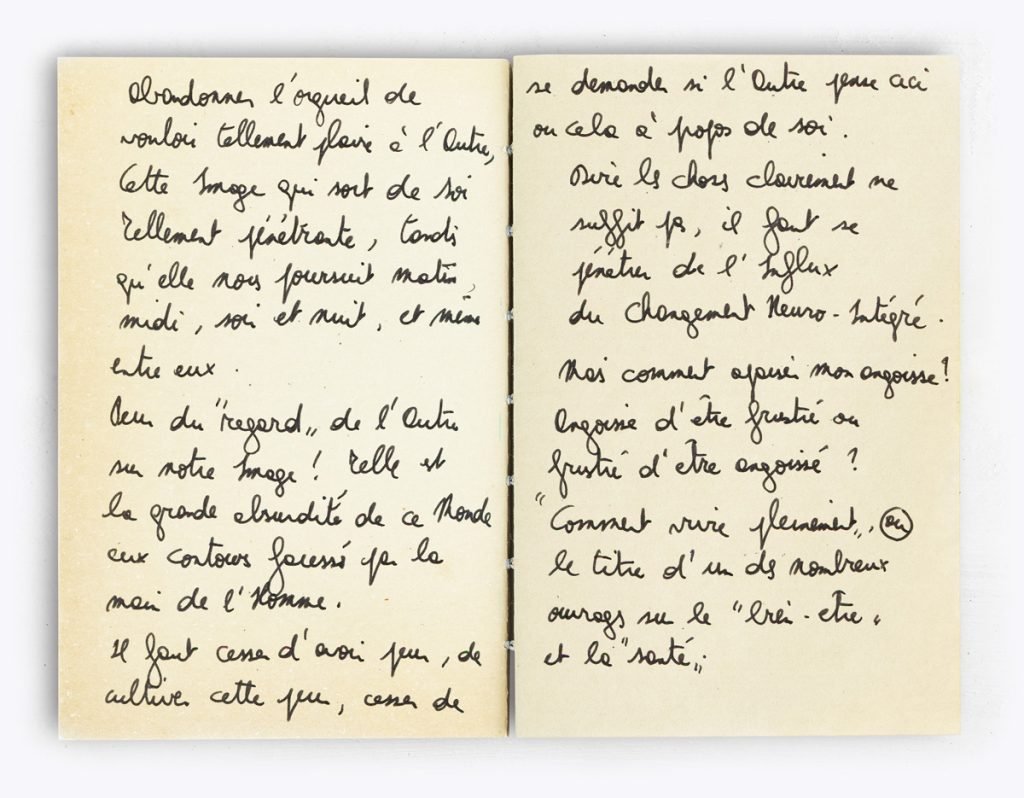 Abandonner l'orgueil de
vouloir tellement plaire à l'Autre,
Cette Image qui sort de soi
Tellement pénétrante, tandis
qu'elle nous poursuit matin,
midi, soir et nuit, et même
entre eux.
Peur du "regard" de l'Autre
sur notre Image! Telle est
la grande absurdité de ce Monde
aux contours
par la
main de l'Homme.
Il faut cesser d'avoir peur, de
cultiver cette peur, cesser de
se demander si l'Autre pense ceci
ou cela à popos de soi.
Dire les choses clairement ne
suffit pas, il faut se
pénétrer de l'Influx
du Changement Neuro-Intégré.
Mais comment apaiser mon angoisse?
Angoisse d'être frustré ou
frustré d'être angoissé ?
"Comment vivre pleinement", ou
le titre d'un des nombreux
ouvrages sur le "bien-être"
et la "santé".